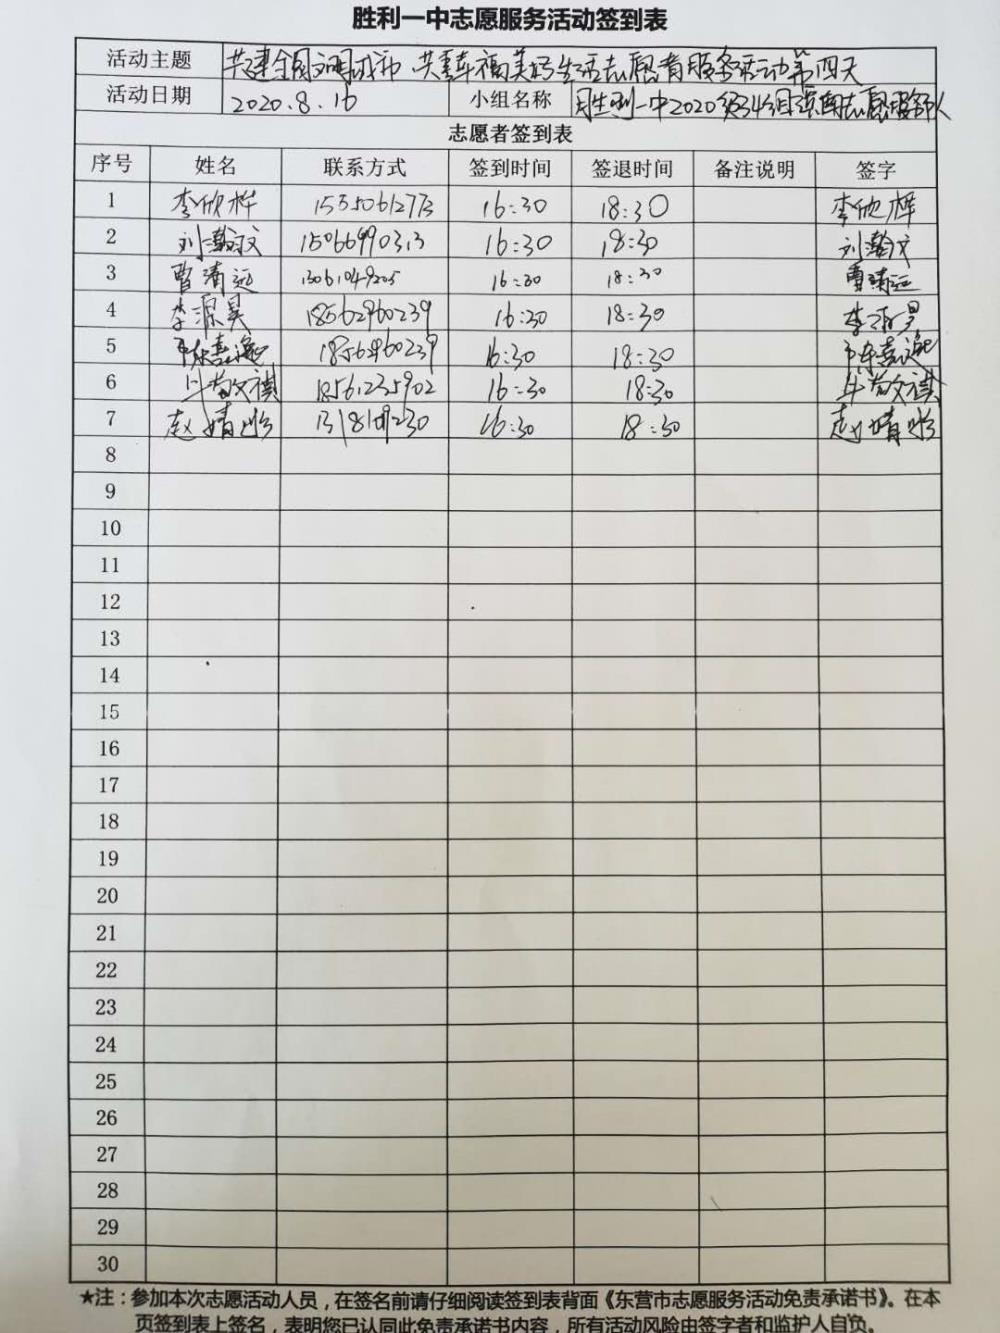 胜利一中志愿服务活动签到表
活动主题 共建全国文明城市 共享幸福美好生活志愿者服务活动第四天
活动日期 2020.8.16 小组名称 胜利一中2020级34班 志愿服务队
志愿者签到表
序号 姓名 联系方式 签到时间 签退时间 备注说明 签字
1 李欣桦 16:30 18:30 李欣桦
2 刘瀚文 15066990313 16:30 18:30 刘瀚文
3 曹清远 13061049205 16:30 18:30 曹清远
4 李源昊 18562960239 16:30 18:30 李源昊
5 陈嘉逸 18562960239 16:30 18:30 陈嘉逸
6 18561235902 16:30 18:30
7 赵婧彤 16:30 18:30 赵婧彤
8
9
10
11
12
13
14
15
16
17
18
19
20
21
22
23
24
25
26
27
28
29
30
★注：参加本次志愿活动人员，在签名前请仔细阅读签到表背面《东营市志愿服务活动免责承诺书》。在本
页签到表上签名，表明您已认同此免责承诺书内容，所有活动风险由签字者和监护人自负。